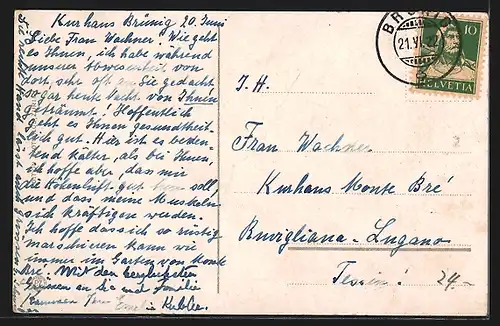 Kurhaus Brünig 20. Juni
Liebe Frau Wachner. Wie geht
es Ihnen, ich habe während
unserer Abwesenheit von
dort, sehr oft an Sie gedacht
sogar heute Nacht von Ihnen
geträumt! Hoffentlich
geht es Ihnen gesundheit-
lich gut. Hier ist es bedeu-
tend kälter, als bei Ihnen,
ich hoffe aber, dass mir
die Höhenluft gut tun soll,
und dass meine Muskeln
sich kräftigen werden.
Ich hoffe dass ich so rüstig
marschieren kann wie
immer im Garten von Monte
Bré. Mit den herzlichsten
Grüssen an Sie und Familie
Emilie Kubler
BRÜNIG
21.VI.
10
HELVETIA
T.H.
Frau Wachner
Kurhaus Monte Bré
Ruvigliana-Lugano
Tessin!
24-